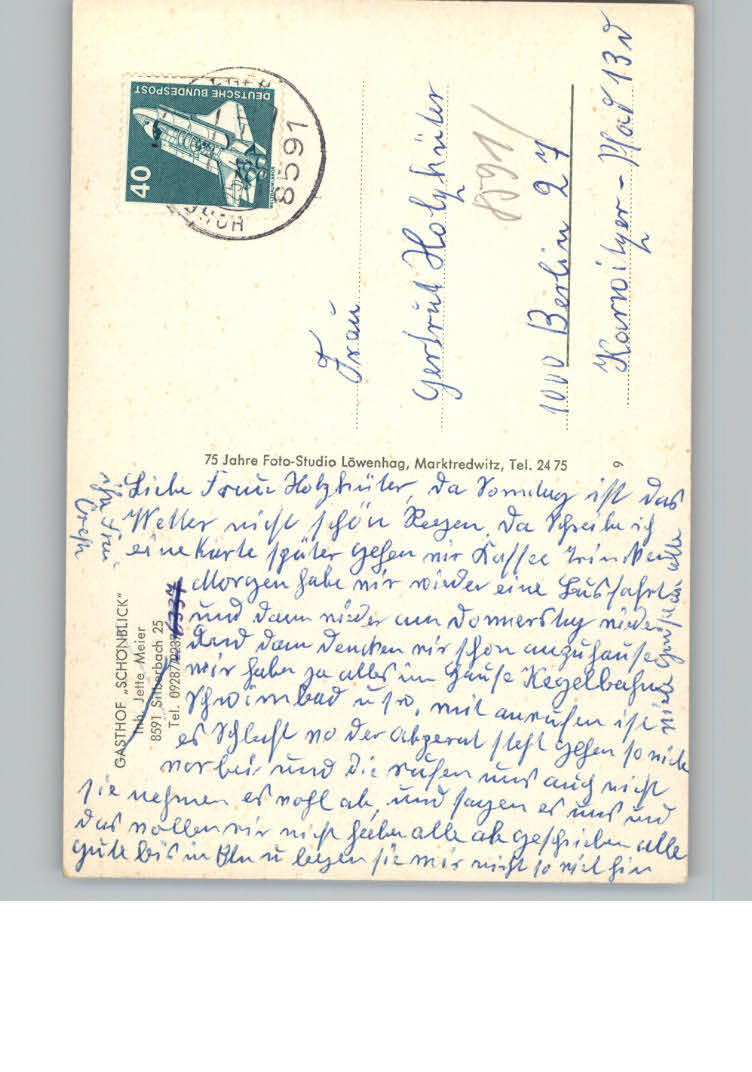 DEUTSCHE BUNDESPOST
40
8591
Frau
Gertrud Holzhüter
8591
1000 Berlin 27
Karwitzer-Pfad 13 d
75 Jahre Foto-Studio Löwenhag, Marktredwitz, Tel. 24 75
9
GASTHOF „SCHÖNBLICK"
Inh. Jette Meier
8591 Silberbach 25
Tel. 09287/2238
6337
Liebe Frau Holzhüter, da Sonndag ist das
Wetter nicht schön Regen, Da Schreibe ich
eine Karte später gehen wir Kaffee Trincken
Morgen habe wir wieder eine Busfahrt
und dann wieder am Donnerstag wieder
und dan dencken wir schon anzuhause
wir haben ja alles im Hause Kegelbahn
Schwimbad usw, mit anrufen ist
es Schlecht wo der Abperat steht gehen so viele
vorbei, und die rufen uns auch nicht
sie nehmen es wohl ab, und sagen es uns und
das wollen wir nicht haben alle ab geschrieben alle
gute bis in Bln u legen sie mir nicht so viel hin
viele Grüße an alle
ihr Frau